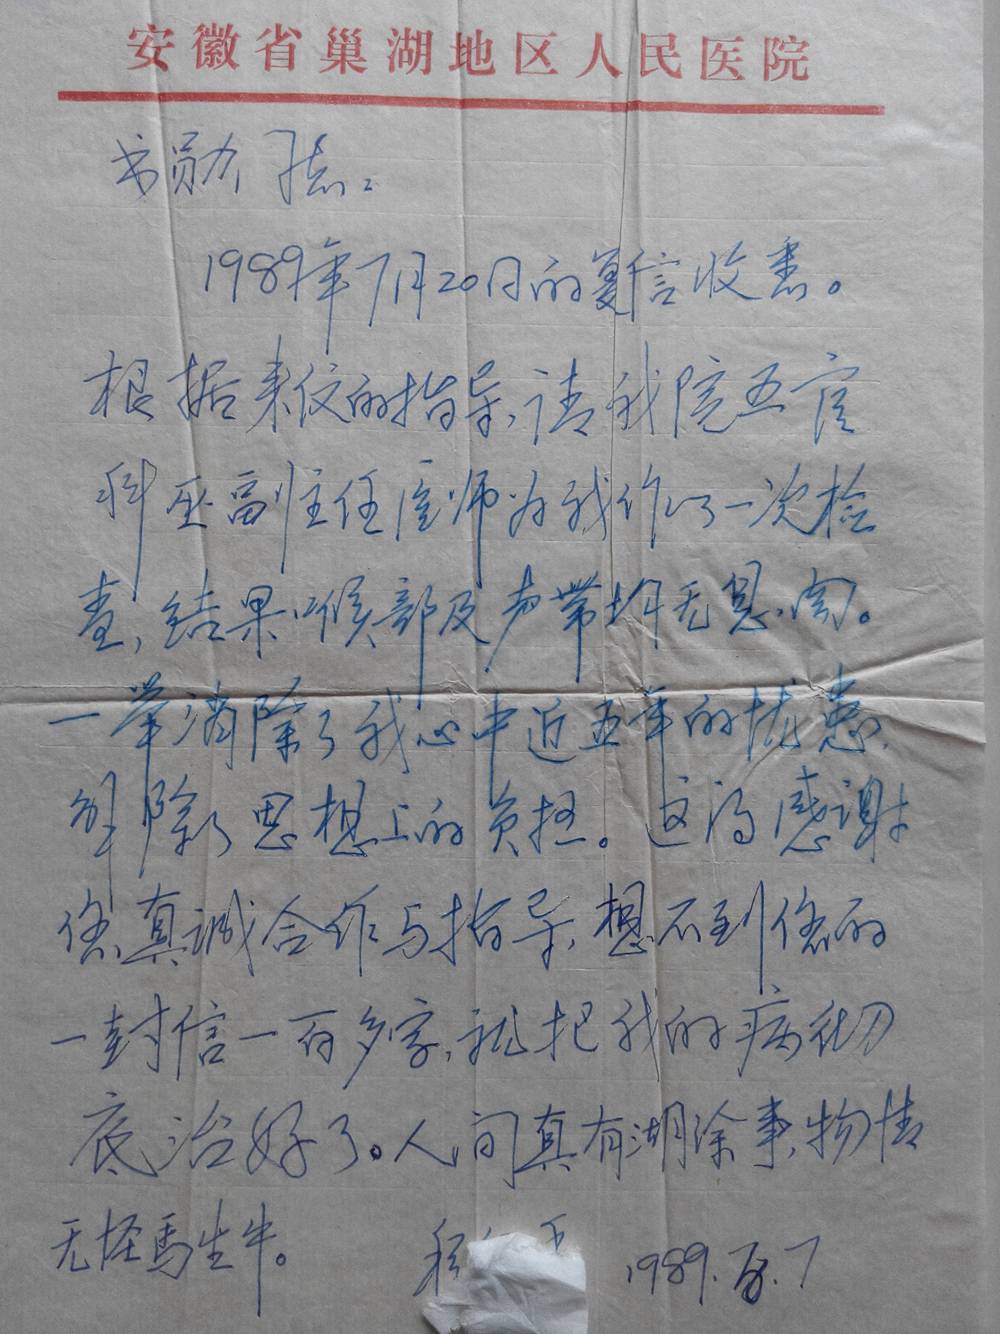 安徽省巢湖地区人民医院
书勋同志：
1989年7月20日的复信收悉。
根据来仪的指导，请我院五官
科巫副主任医师为我作了一次检
查，结果喉部及声带均无息肉。
一举消除了我心中近五年的忧患，
卸除了思想上的负担。这得感谢
您真诚合作与指导，想不到您的
一封信一百多字，就把我的病彻
底治好了。人间真有湖涂事，物情
无怪馬生牛。
1989.8.7